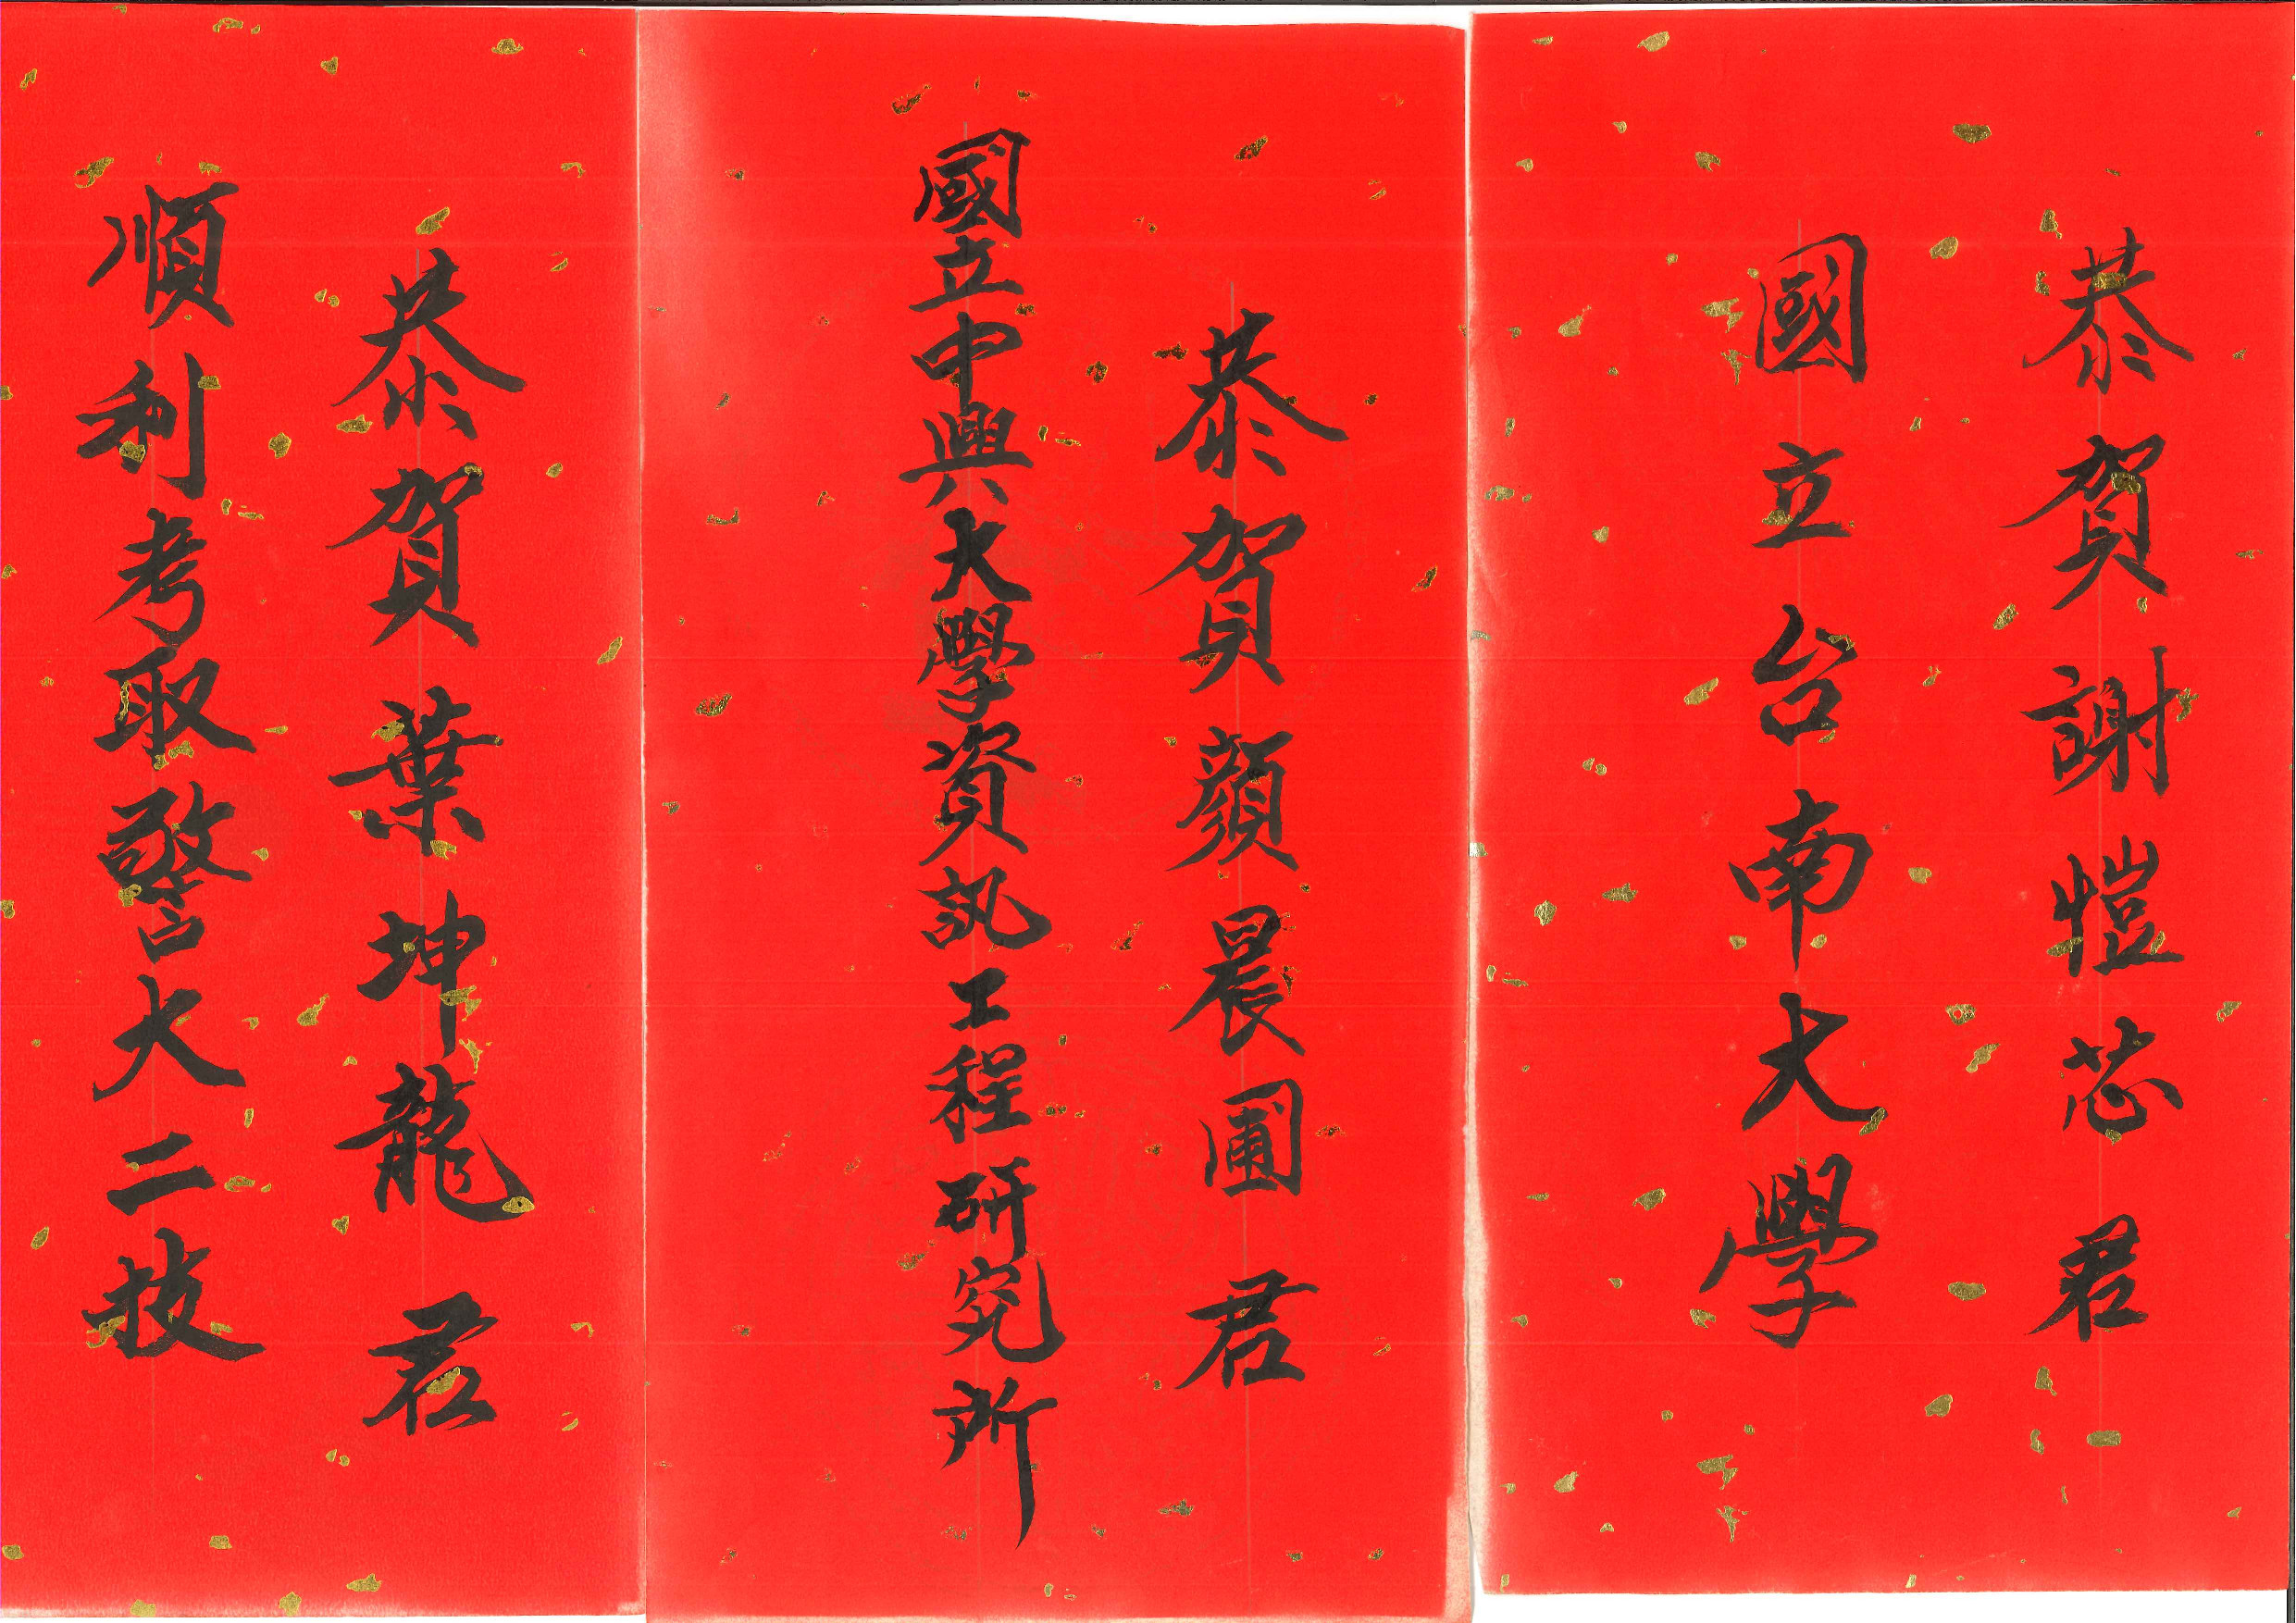 恭賀謝愷芯君
國立台南大學
恭賀顏晨圃君
國立中興大學資訊工程研究所
恭賀葉坤龍君
順利考取警大二技